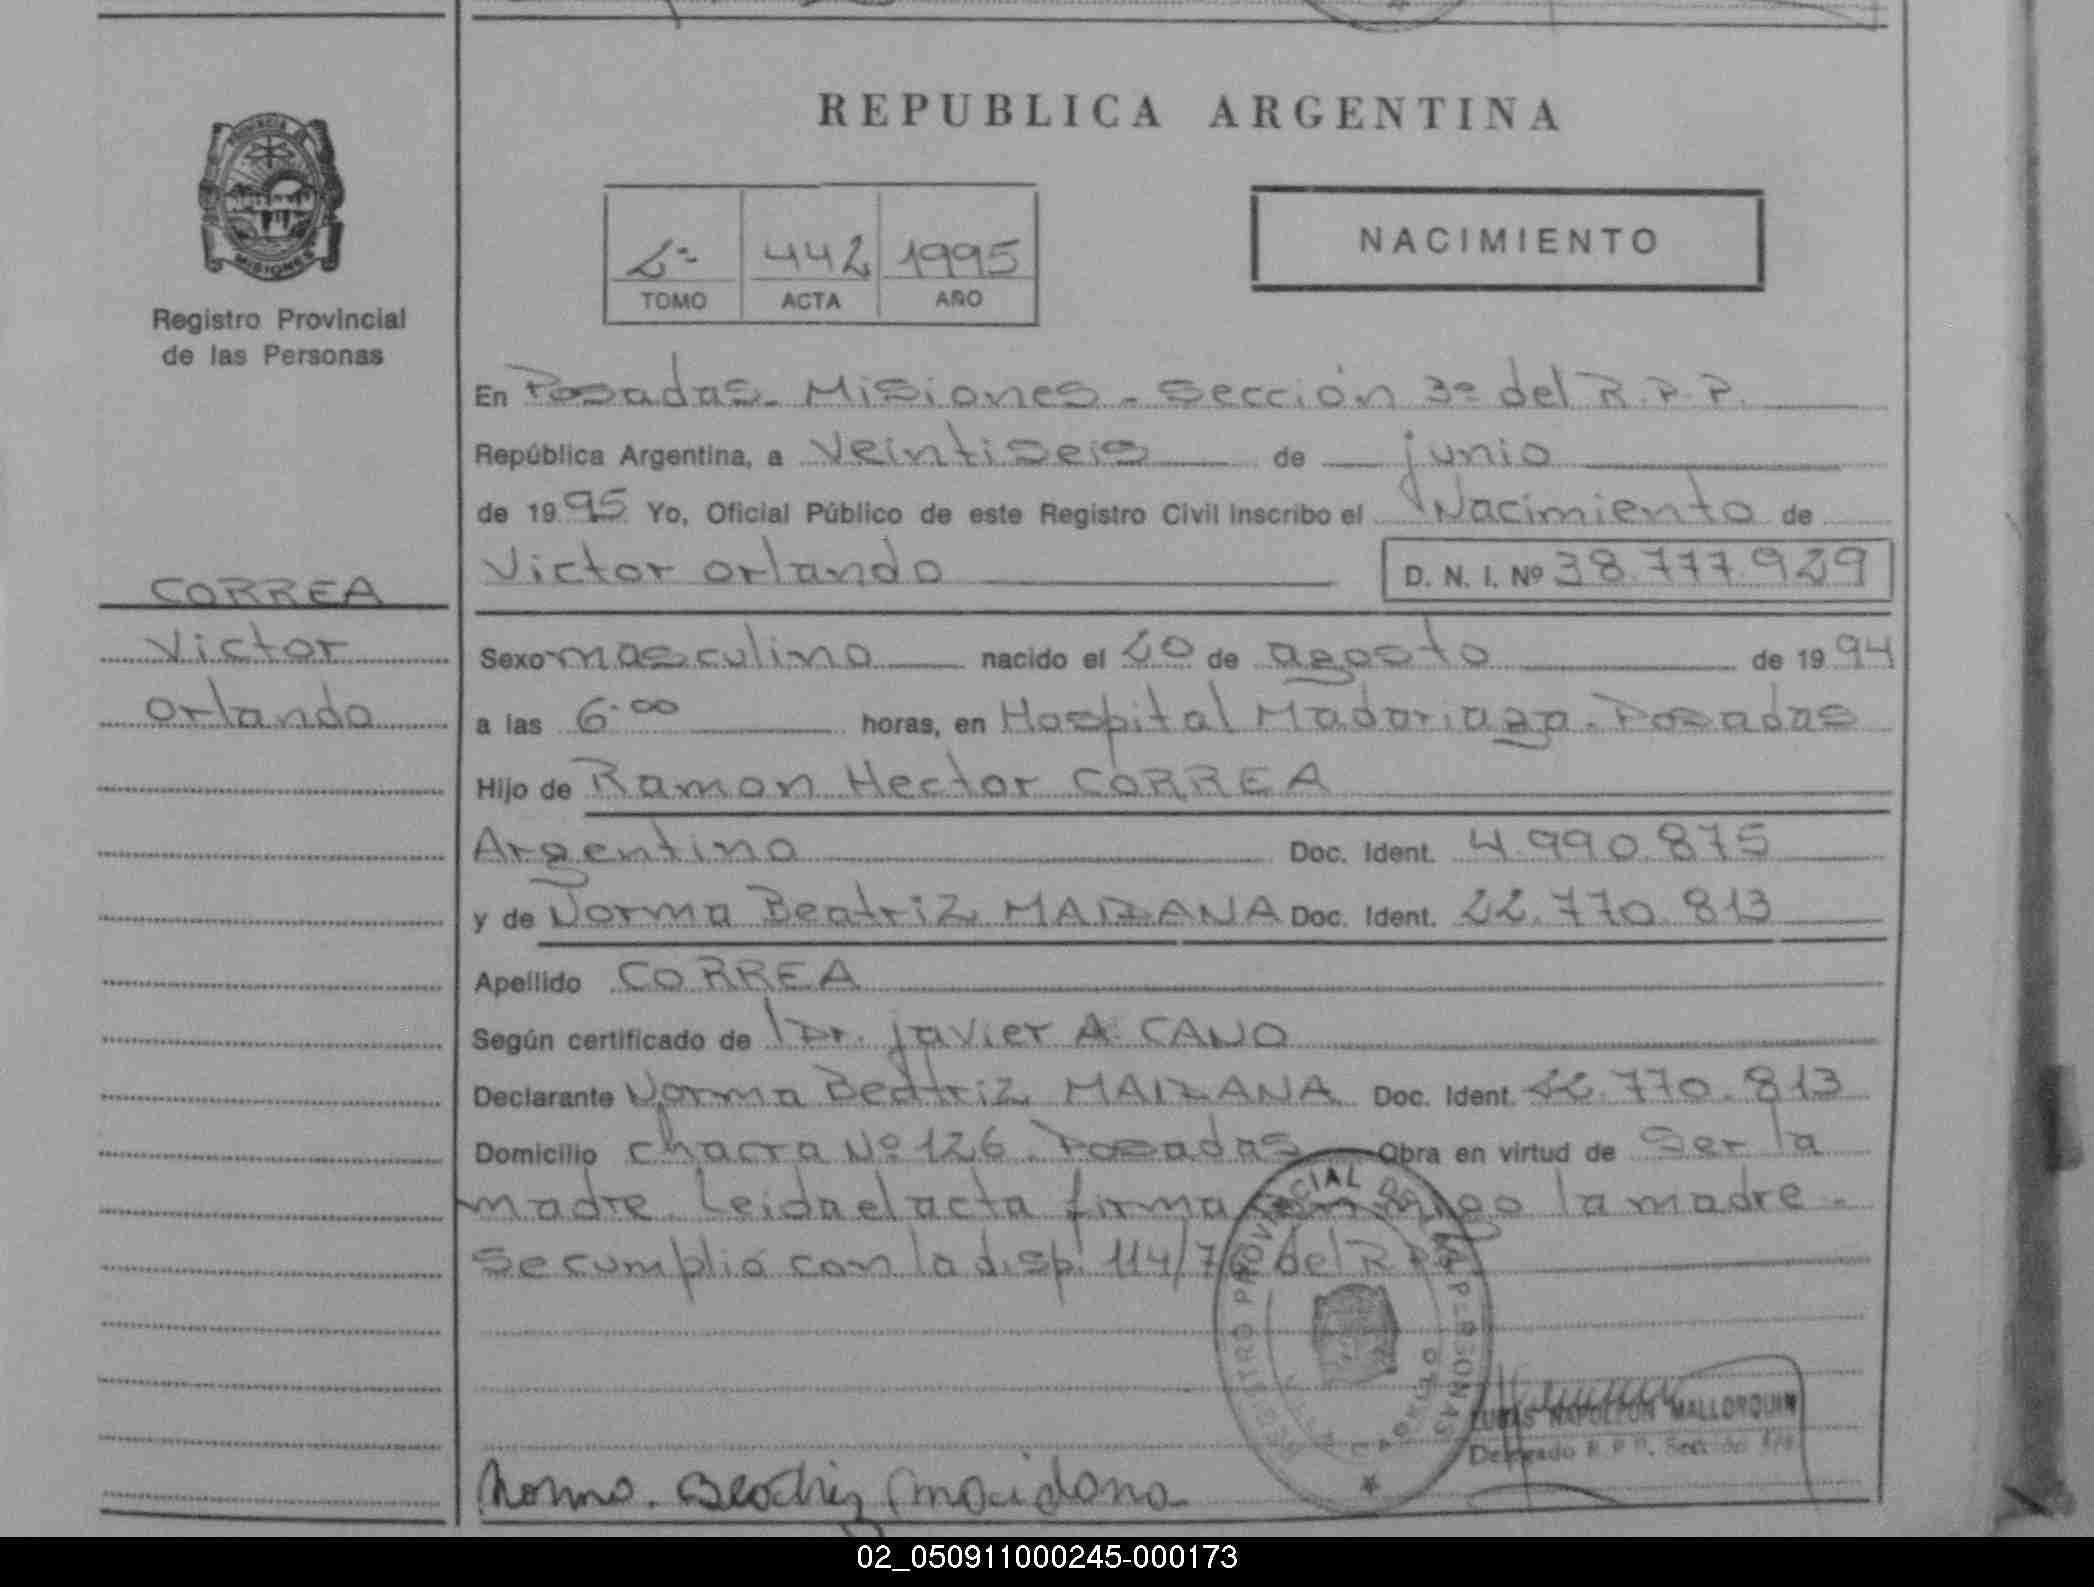 REPUBLICA ARGENTINA
MISIONES
Registro Provincial
de las Personas
2º 442 1995
TOMO ACTA AÑO
NACIMIENTO
En Posadas - Misiones - Sección 3º del R.P.P.
República Argentina, a veintiseis de junio
de 1995 Yo, Oficial Público de este Registro Civil inscribo el Nacimiento de
Victor Orlando D. N. I. Nº 38.777.929
CORREA
Victor
Orlando
Sexo masculino nacido el 20 de agosto de 1994
a las 6.00 horas, en Hospital Madariaga - Posadas
Hijo de Ramon Hector CORREA
Argentino Doc. Ident. 4.990.875
y de Norma Beatriz MAIDANA Doc. Ident. 22.770.813
Apellido CORREA
Según certificado de Dr. Javier A. CANO
Declarante Norma Beatriz MAIDANA Doc. Ident. 22.770.813
Domicilio chacra Nº 126 Posadas Obra en virtud de ser la
madre. Leida el acta firma conmigo la madre -
Se cumplió con la disp. 114/76 del R.P.P.
REGISTRO PROVINCIAL DE LAS PERSONAS
LUCAS NAPOLEON MALLORQUIN
Delegado R.P.P. Sección
Norma Beatriz Maidana
02_050911000245-000173